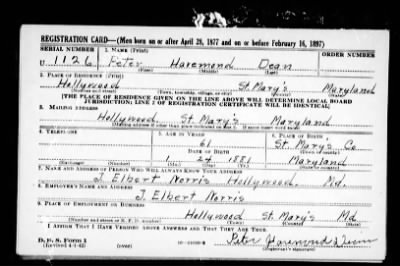 REGISTRATION CARD—(Men born on or after April 28, 1877 and on or before February 16, 1897)
SERIAL NUMBER 1. NAME (Print) ORDER NUMBER
U 1126 Peter Haremond Dean
(First) (Middle) (Last)
2. PLACE OF RESIDENCE (Print)
Hollywood St. Mary's Maryland
(Town, township, village, or city) (County) (State)
[THE PLACE OF RESIDENCE GIVEN ON THE LINE ABOVE WILL DETERMINE LOCAL BOARD
JURISDICTION; LINE 2 OF REGISTRATION CERTIFICATE WILL BE IDENTICAL]
3. MAILING ADDRESS
Hollywood St. Mary's Maryland
[Mailing address if other than place indicated on line 2. If same insert word same]
4. TELEPHONE 5. AGE IN YEARS 6. PLACE OF BIRTH
61 St. Mary's Co.
DATE OF BIRTH (Town or county)
1 24 1881 Maryland
(Exchange) (Number) (Mo.) (Day) (Yr.) (State or country)
7. NAME AND ADDRESS OF PERSON WHO WILL ALWAYS KNOW YOUR ADDRESS
J. Elbert Norris Hollywood, Md.
8. EMPLOYER'S NAME AND ADDRESS
J. Elbert Norris
9. PLACE OF EMPLOYMENT OR BUSINESS
Hollywood St. Mary's Md
(Number and street or R. F. D. number) (Town) (County) (State)
I AFFIRM THAT I HAVE VERIFIED ABOVE ANSWERS AND THAT THEY ARE TRUE.
D. S. S. Form 1 Peter Haremond Dean
(Revised 4-1-42) (over) (Registrant's signature)